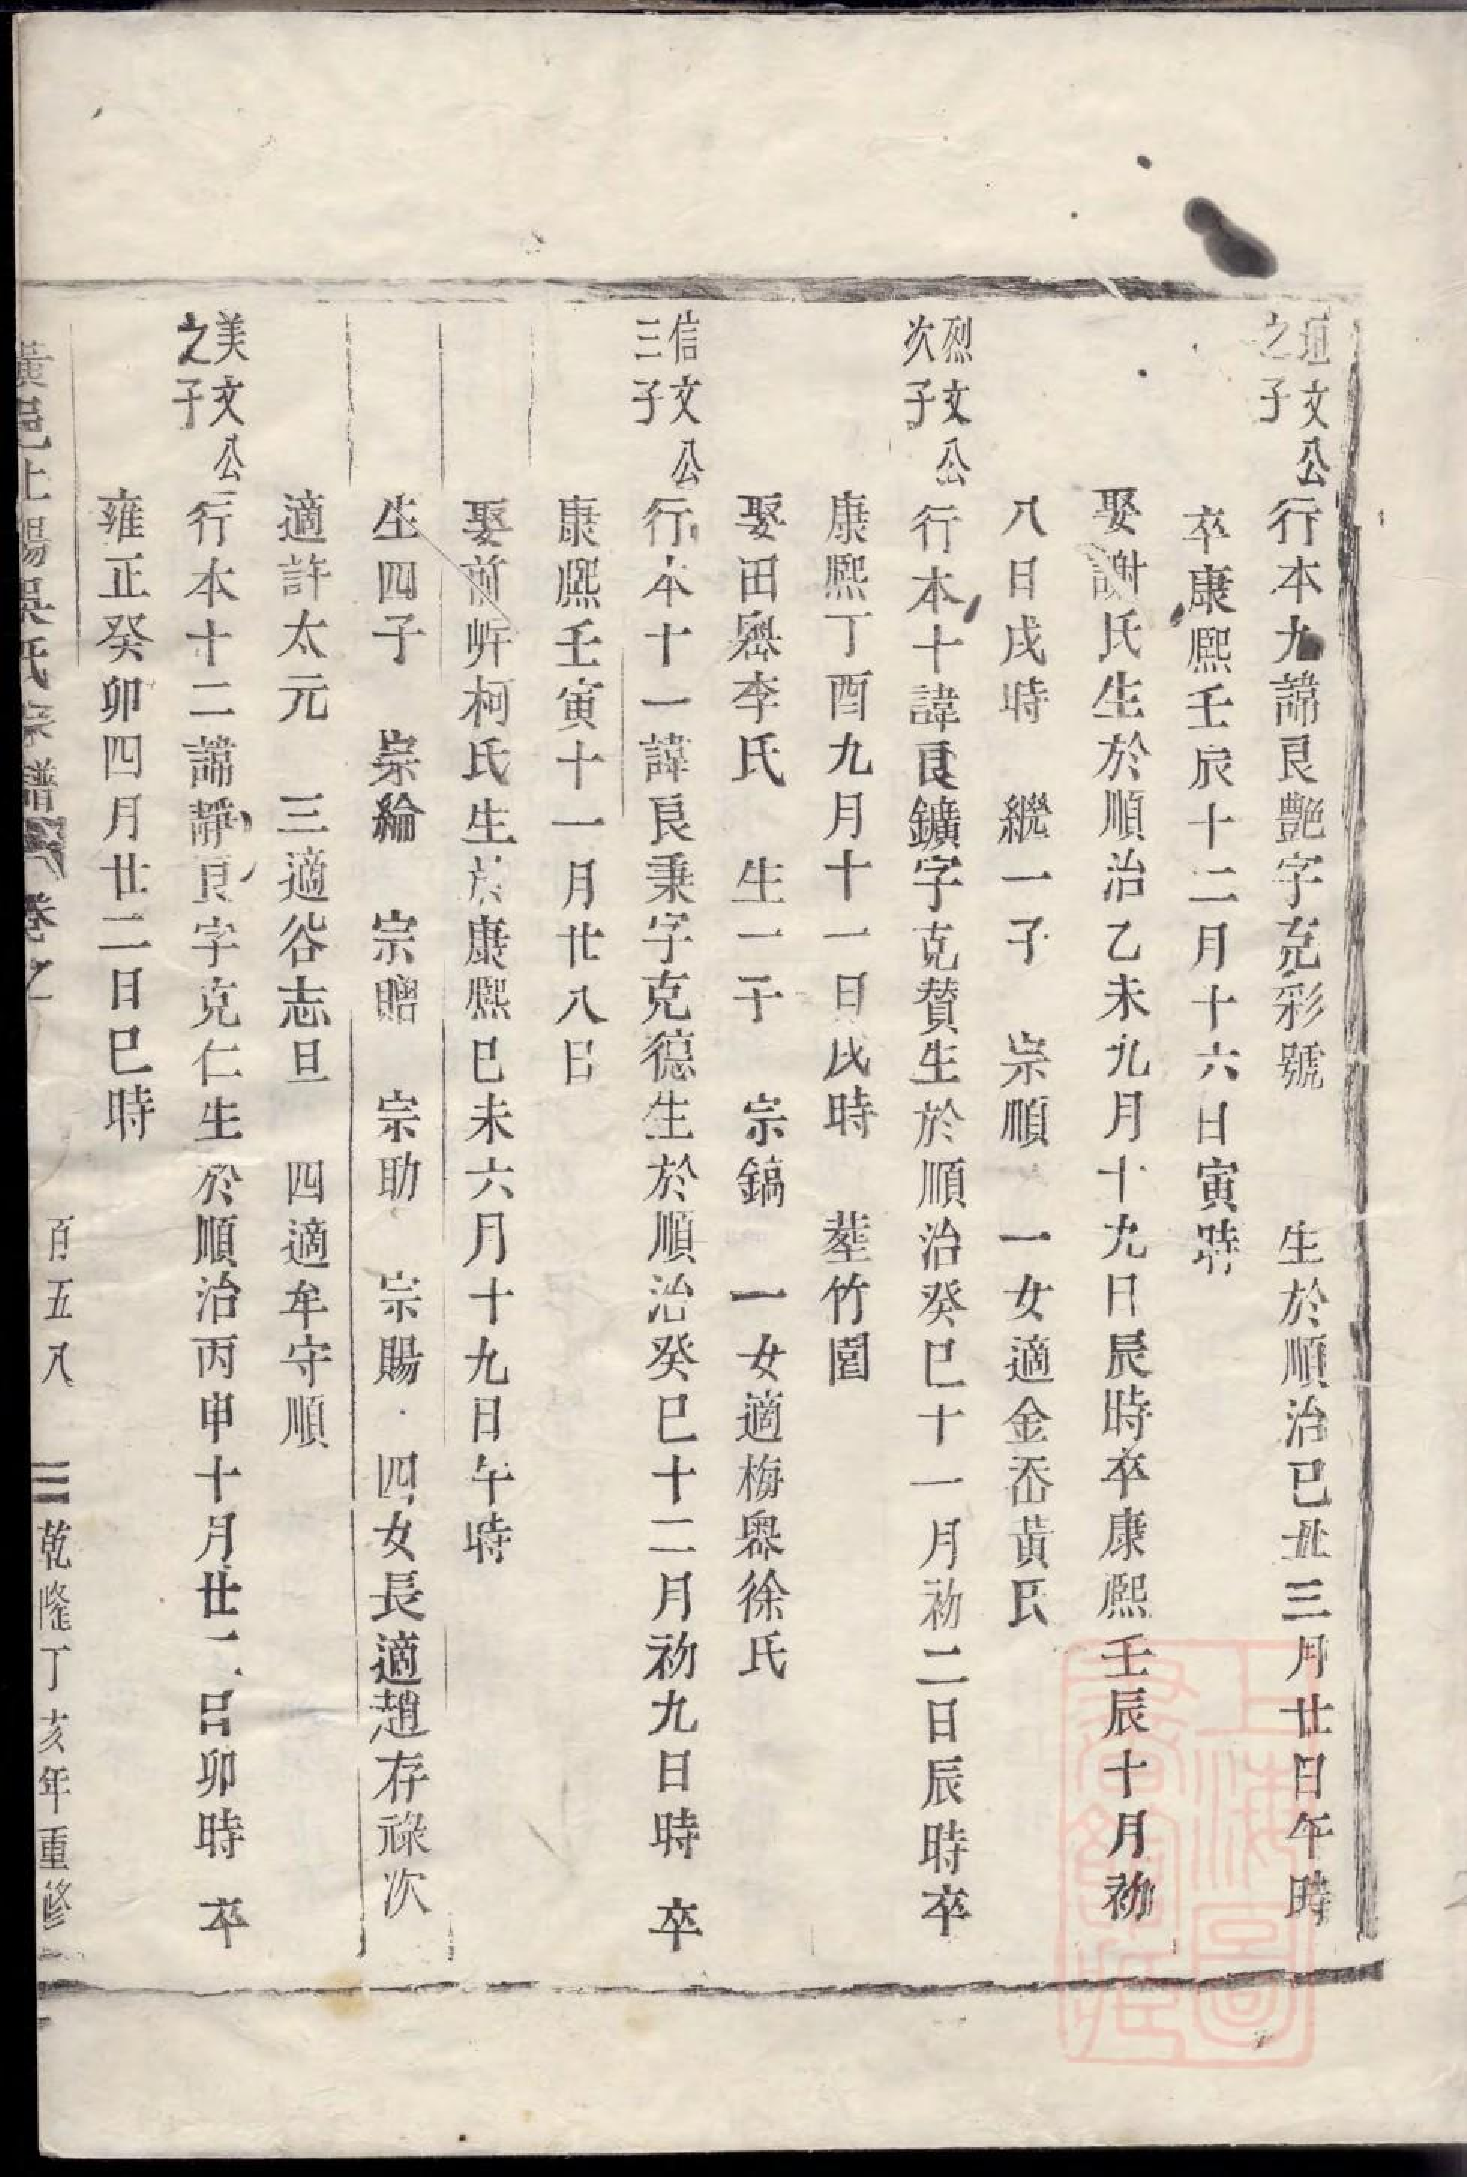 道文公之子
行本九諱良艷字克彩號 生於順治己丑三月廿日午時
卒康熙壬辰十二月十六日寅時
娶謝氏生於順治乙未九月十九日辰時卒康熙壬辰十月初
八日戌時 繼一子 宗順 一女適金岙黃氏
烈文公次子
行本十諱良鑛字克贊生於順治癸巳十一月初二日辰時卒
康熙丁酉九月十一日戌時 塟竹園
娶田𡼏李氏 生一子 宗鎬 一女適梅𡼏徐氏
信文公三子
行本十一諱良秉字克德生於順治癸巳十二月初九日時 卒
康熙壬寅十一月廿八日
娶前㟁柯氏生於康熙己未六月十九日午時
生四子 宗綸 宗贈 宗助 宗賜 四女長適趙存祿次
適許太元 三適谷志旦 四適牟守順
美文公之子
行本十二諱靜良字克仁生於順治丙申十月廿一日卯時 卒
雍正癸卯四月廿二日巳時
黃邑上陽吳氏宗譜 卷之 百五八 乾隆丁亥年重修
上海圖書館藏